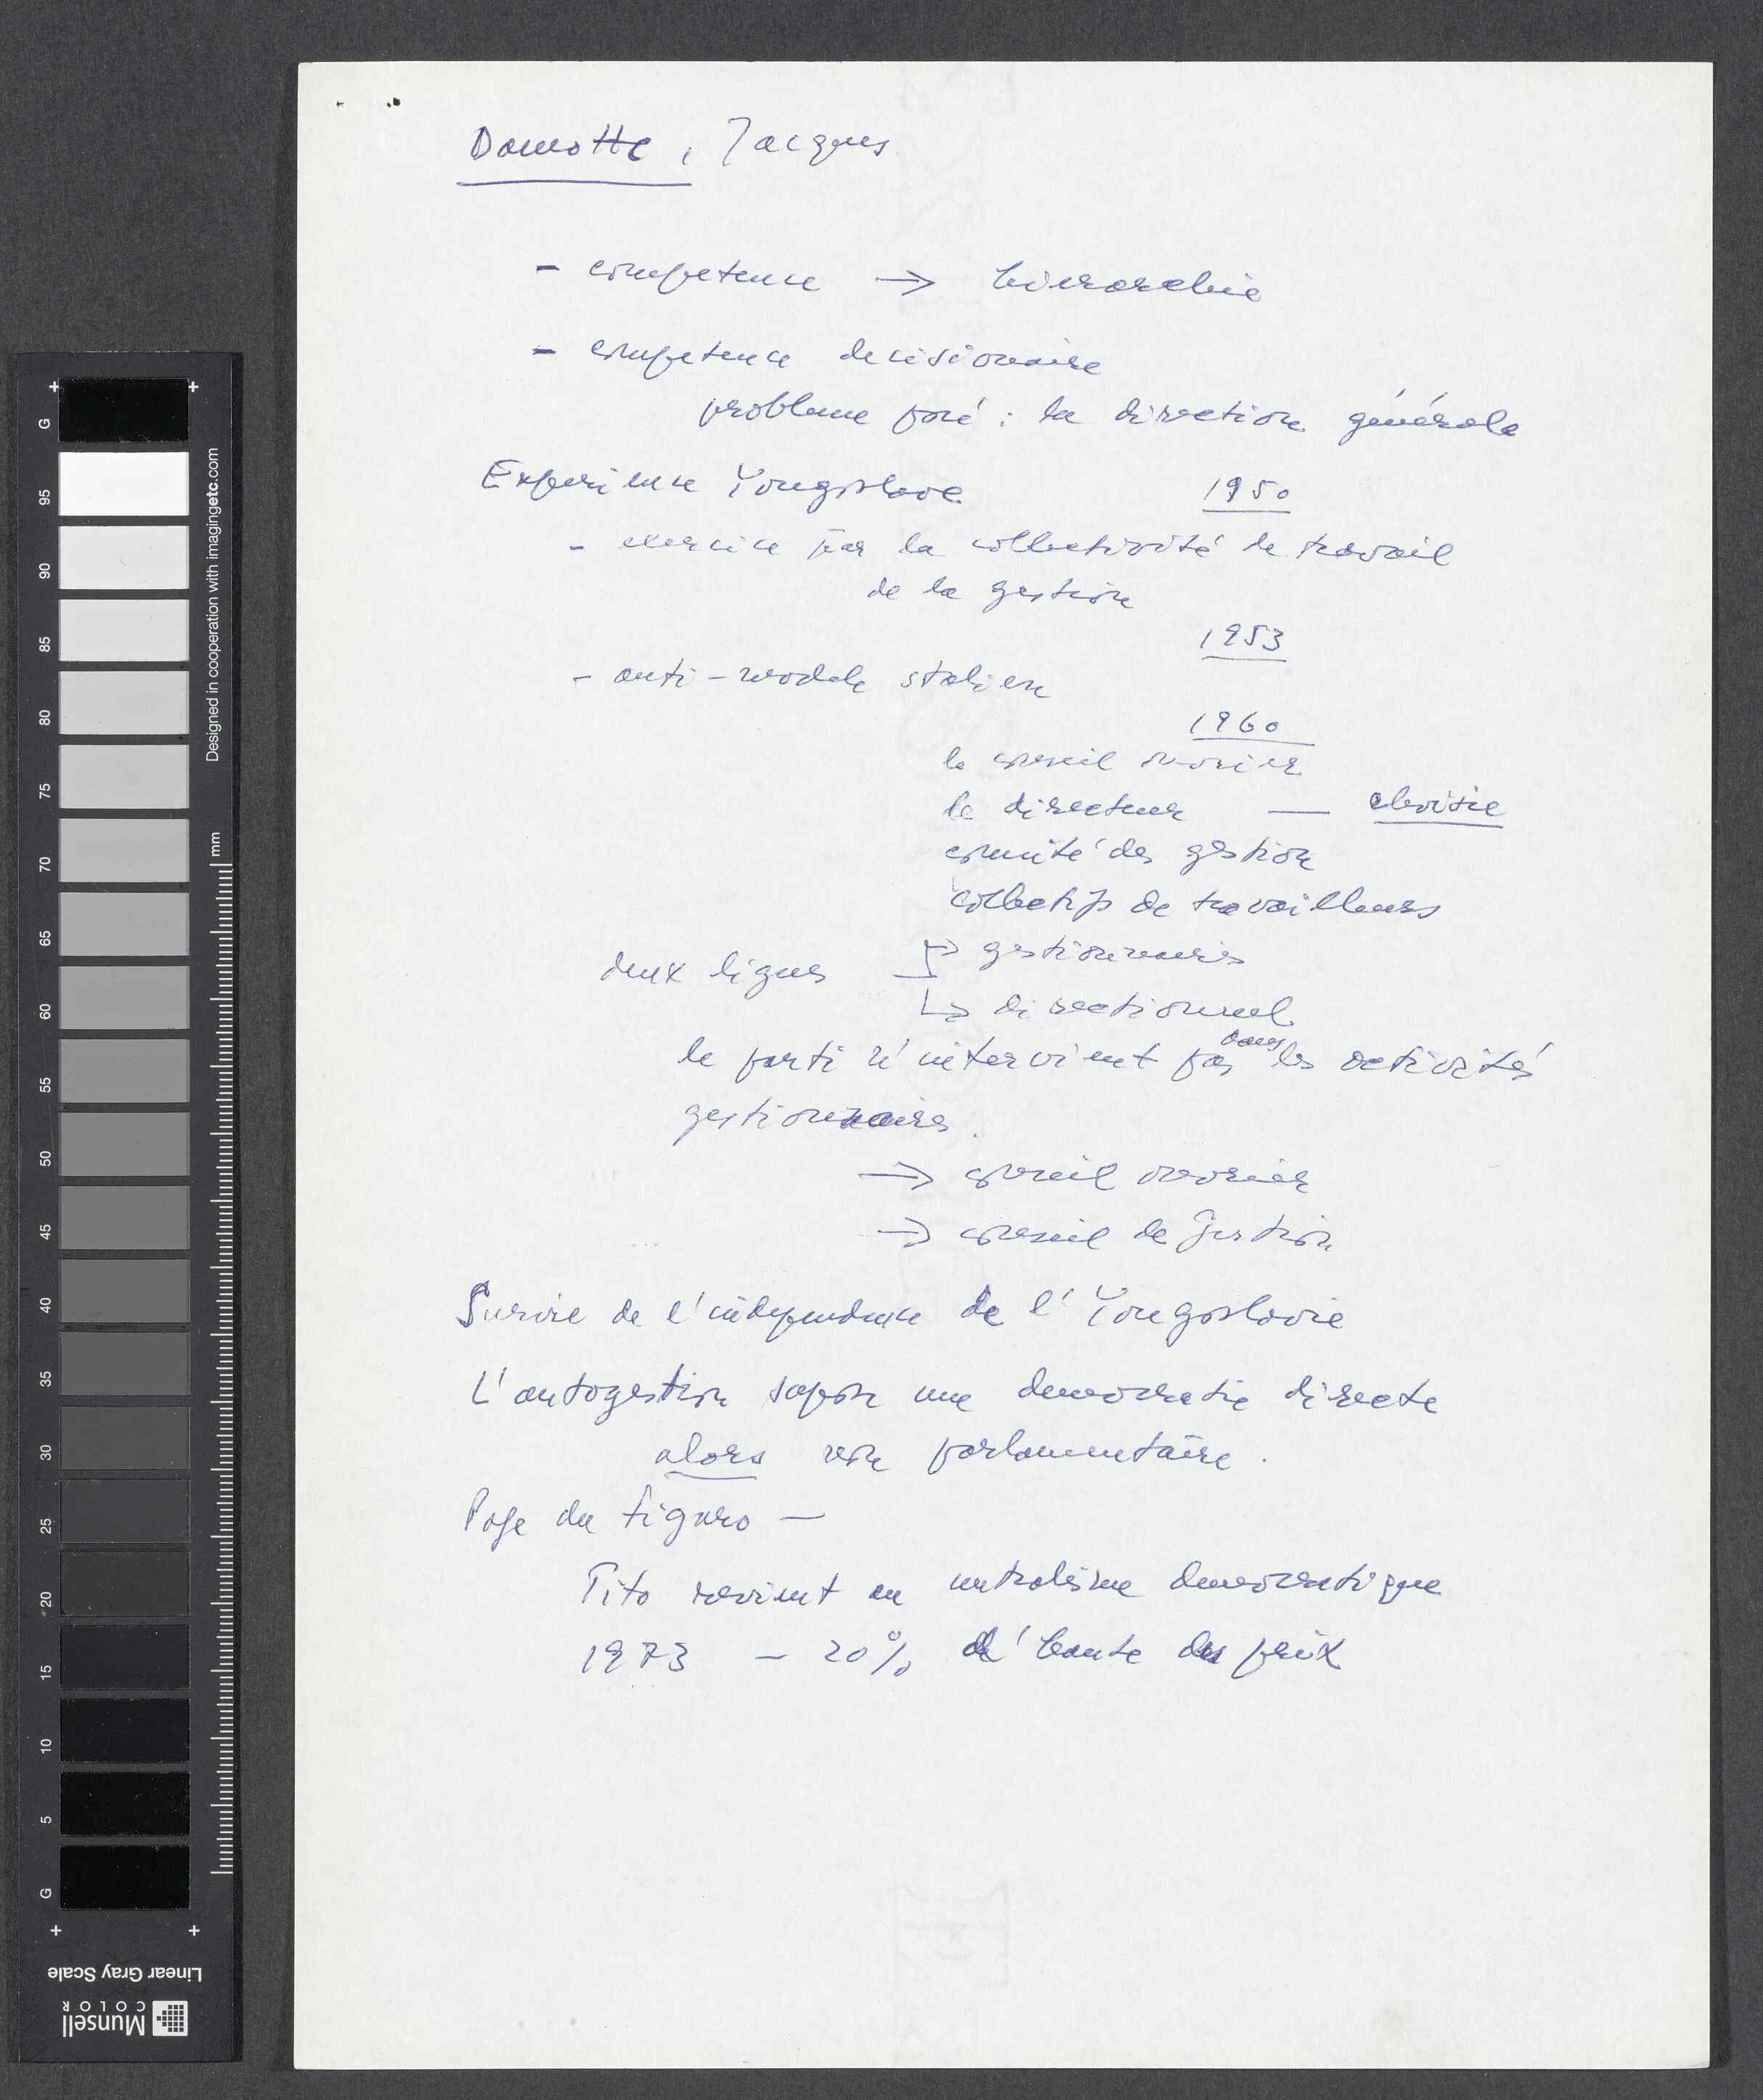 Damotte, Jacques
- competence → hierarchie
- competence decisionaire
probleme posé : la direction générale
Experience Yougoslave 1950
- exercice par la collectivité de travail
de la gestion
1953
- anti-modele stalien
1960
le conseil ouvrier
le directeur — choisie
comité des gestion
collectifs de travailleurs
deux lignes → gestionnaires
↳ directionnel
le parti n'intervient pas dans les activités
gestionnaires.
→ conseil ouvrier
→ conseil de gestion
Survie de l'independence de l'Yougoslavie
L'autogestion sopose une democratie directe
alors non parlamentaire.
Page du Figaro —
Tito revient au centralisme democratique
1973 - 20% d'haute des prix
G
95
90
85
80
75
70
65
60
55
50
45
40
35
30
25
20
15
10
5
G
Designed in cooperation with imagingetc.com
mm
Linear Gray Scale
Munsell
COLOR